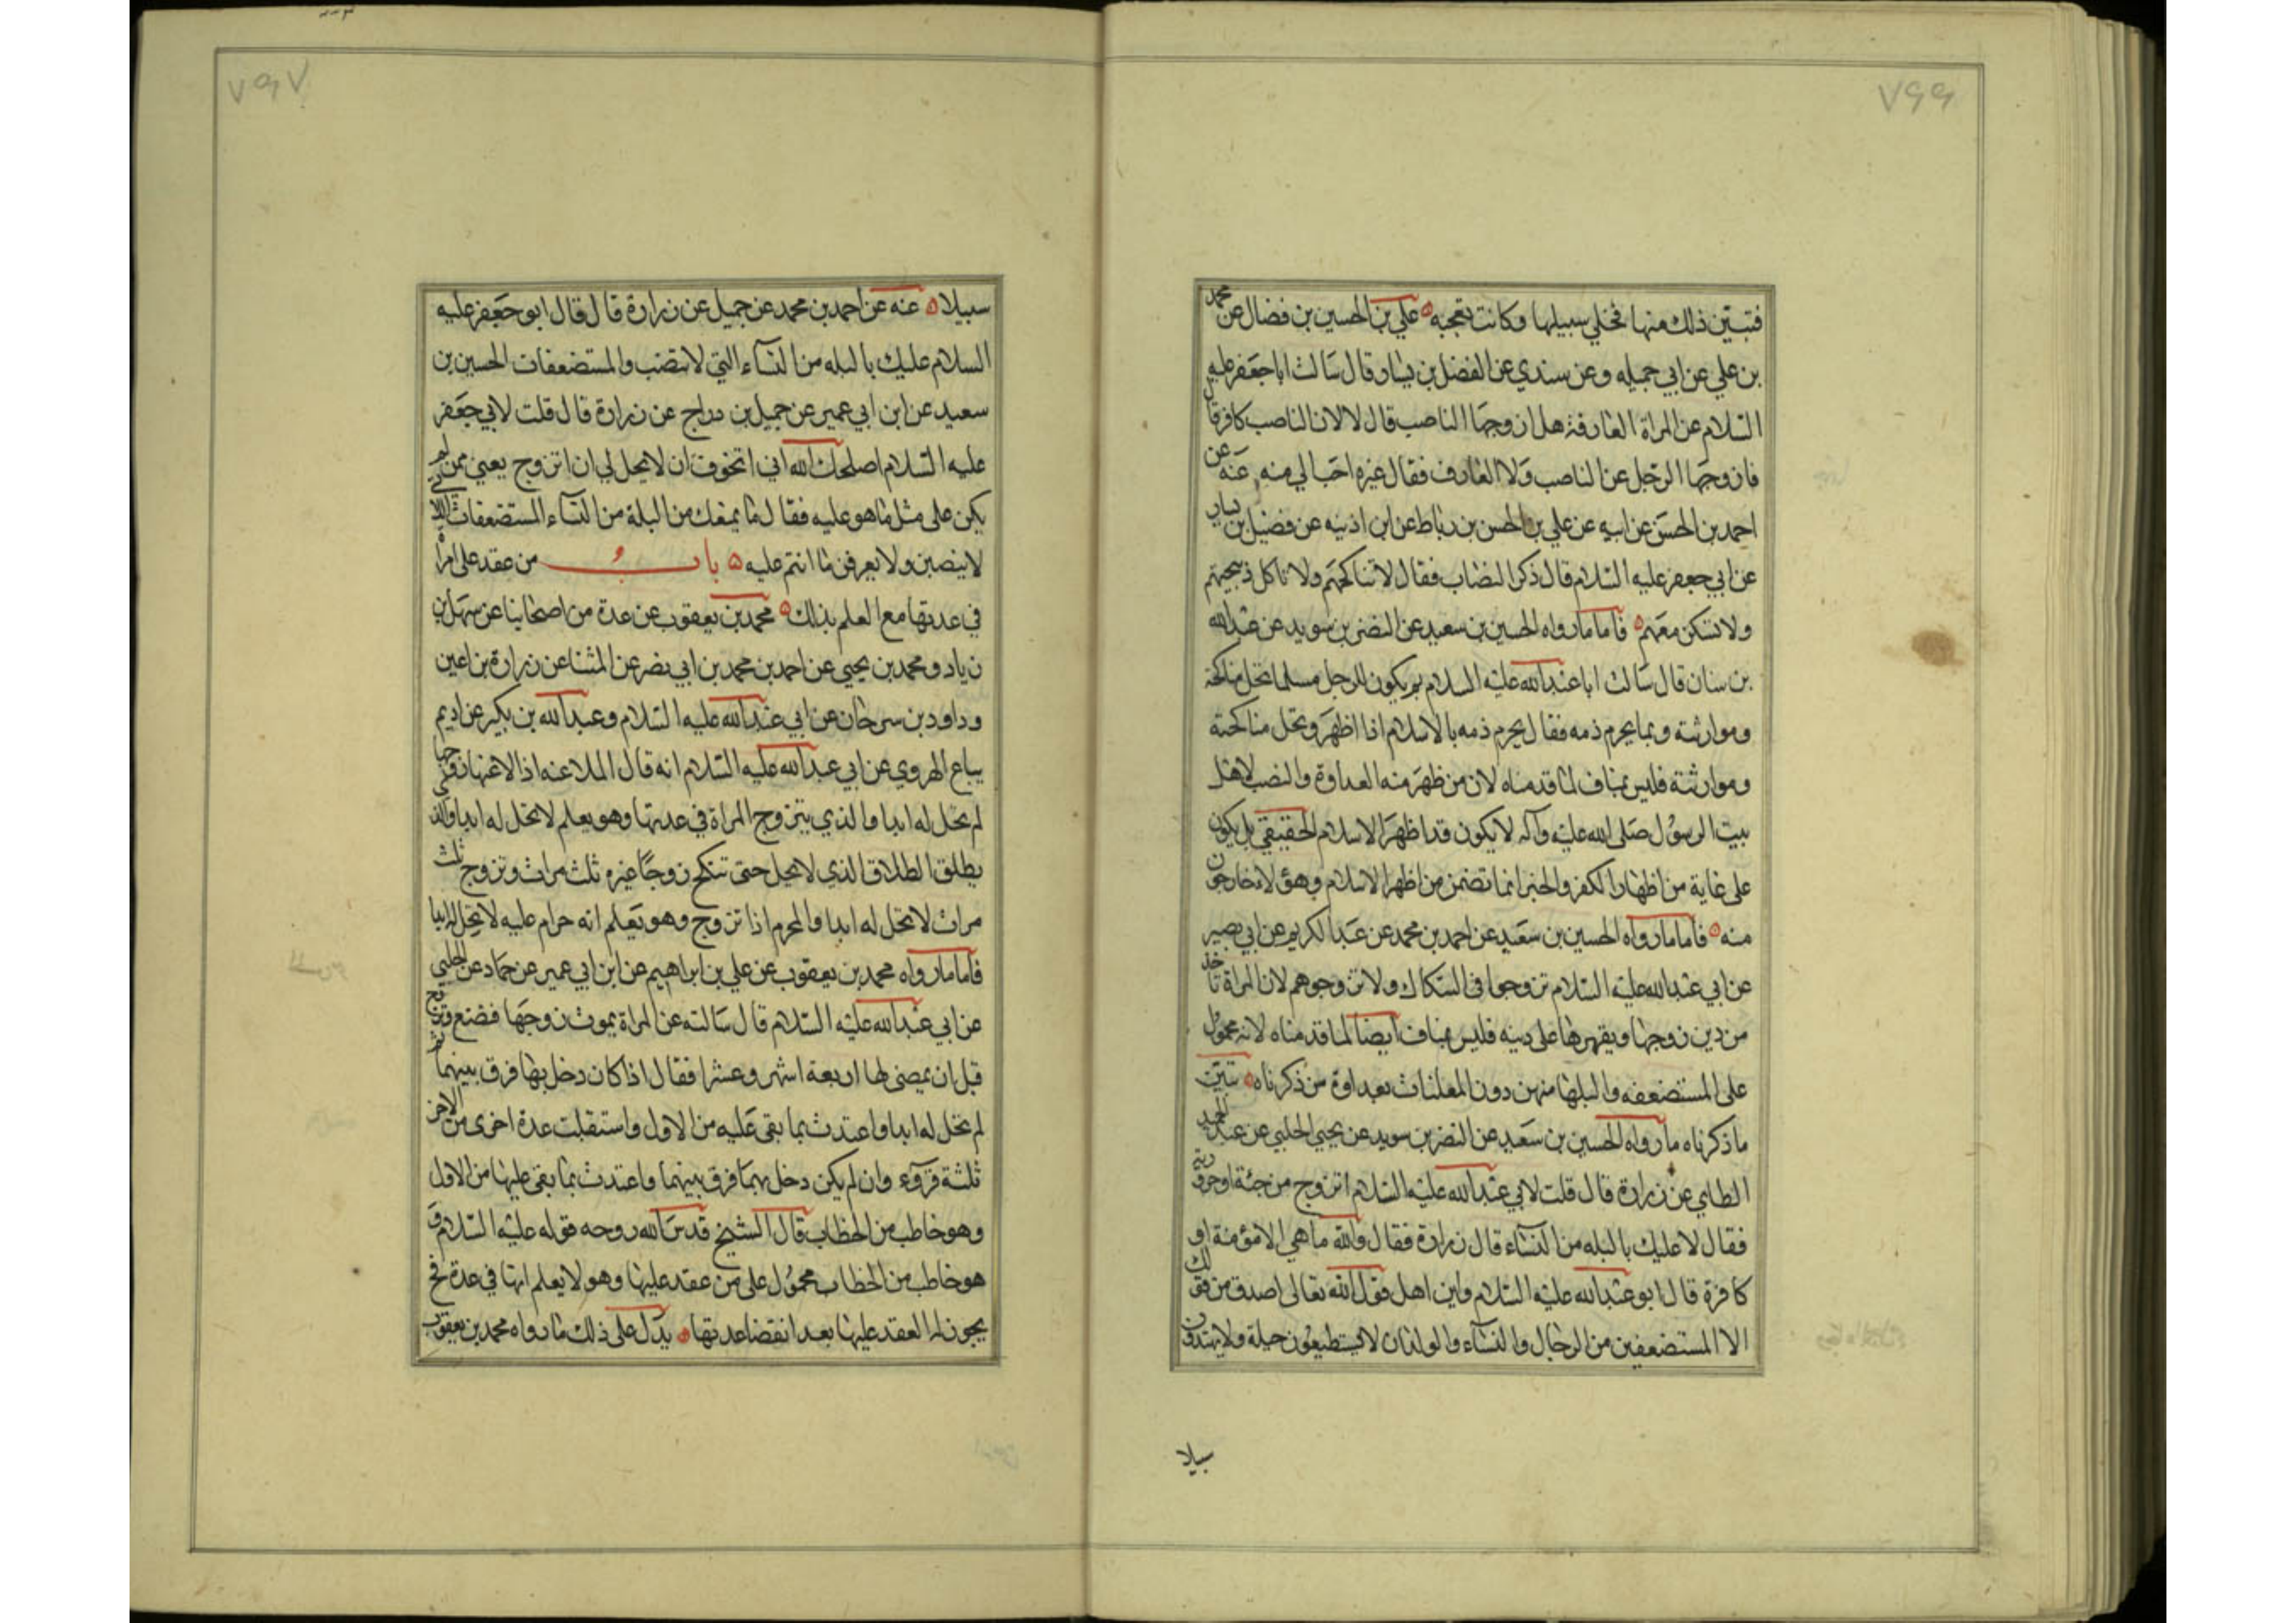 ٧٩٩
فتبين ذلك منها فخلى سبيلها وكانت تعجبه علي بن الحسين بن فضال عن محمد
بن علي عن ابي جميله وعن سندي عن الفضل بن يسار قال سالت ابا جعفر عليه
السلام عن المراة العارفة هل ازوجها الناصب قال لا لان الناصب كافر قال
فازوجها الرجل عن الناصب ولا العارف فقال غيره احب الي منه عنه عن
احمد بن الحسن عن ابيه عن علي بن الحسن بن رباط عن ابن اذينه عن فضيل بن يسار
عن ابي جعفر عليه السلام قال ذكر النصاب فقال لا تناكحهم ولا تاكل ذبيحتهم
ولا تسكن معهم فاما ما رواه الحسين بن سعيد عن النضر بن سويد عن عبد الله
بن سنان قال سالت ابا عبد الله عليه السلام بم يكون الرجل مسلما تحل مناكحته
وموارثته وبما يحرم دمه فقال يحرم دمه بالاسلام اذا اظهر وتحل مناكحته
وموارثته فليس بمناف لما قدمناه لان من ظهر منه العداوة والنصب لاهل
بيت الرسول صلى الله عليه وآله لا يكون قد اظهر الاسلام الحقيقي بل يكون
على غاية من اظهار الكفر والخبر انما تضمن من اظهر الاسلام وهؤلاء خارجون
منه فاما ما رواه الحسين بن سعيد عن احمد بن محمد عن عبد الكريم عن ابي بصير
عن ابي عبد الله عليه السلام تزوجوا في الشكاك ولا تزوجوهم لان المراة تاخذ
من دين زوجها ويقهرها على دينه فليس بمناف ايضا لما قدمناه لانه محمول
على المستضعفه والبلها منهن دون المعلنات بعداوة من ذكرناه يبين
ما ذكرناه ما رواه الحسين بن سعيد عن النضر بن سويد عن يحيى الحلبي عن عبد الحميد
الطائي عن زرارة قال قلت لابي عبد الله عليه السلام اتزوج مرجئة او حرورية
فقال لا عليك بالبله من النساء قال زرارة فقال والله ما هي الا مؤمنة او
كافرة قال ابو عبد الله عليه السلام واين اهل قول الله تعالى اصدق من قولك
الا المستضعفين من الرجال والنساء والولدان لا يستطيعون حيلة ولا يهتدون
سبيلا
٧٩٧
سبيلا عنه عن احمد بن محمد عن جميل عن زرارة قال قال ابو جعفر عليه
السلام عليك بالبله من النساء التي لا تنصب والمستضعفات الحسين بن
سعيد عن ابن ابي عمير عن جميل بن دراج عن زرارة قال قلت لابي جعفر
عليه السلام اصلحك الله اني اتخوف ان لا يحل لي ان اتزوج يعني ممن لم
يكن على مثل ما هو عليه فقال ما يمنعك من البلة من النساء المستضعفات اللاتي
لا ينصبن ولا يعرفن ما انتم عليه باب من عقد على امراة
في عدتها مع العلم بذلك محمد بن يعقوب عن عدة من اصحابنا عن سهل بن
زياد ومحمد بن يحيي عن احمد بن محمد بن ابي نصر عن المثنا عن زرارة بن اعين
وداود بن سرحان عن ابي عبد الله عليه السلام وعبد الله بن بكير عن اديم
بياع الهروي عن ابي عبد الله عليه السلام انه قال الملاعنه اذا لاعنها زوجها
لم تحل له ابدا والذي يتزوج المراة في عدتها وهو يعلم لا تحل له ابدا والذي
يطلق الطلاق الذي لا يحل حتى تنكح زوجا غيره ثلث مرات وتزوج ثلث
مرات لا تحل له ابدا والمحرم اذا تزوج وهو يعلم انه حرام عليه لا تحل له ابدا
فاما ما رواه محمد بن يعقوب عن علي بن ابراهيم عن ابن ابي عمير عن حماد عن الحلبي
عن ابي عبد الله عليه السلام قال سالته عن المراة يموت زوجها فتضع وتزوج
قبل ان يمضى لها اربعة اشهر وعشرا فقال اذا كان دخل بها فرق بينهما ثم
لم تحل له ابدا واعتدت بما بقى عليه من الاول واستقبلت عدة اخرى من الاخر
ثلثة قروء وان لم يكن دخل بهما فرق بينهما واعتدت بما بقى عليها من الاول
وهو خاطب من الخطاب قال الشيخ قدس الله روحه قوله عليه السلام و
هو خاطب من الخطاب محمول على من عقد عليها وهو لا يعلم انها في عدة فح
يجوز له العقد عليها بعد انقضا عدتها يدل على ذلك ما رواه محمد بن يعقوب